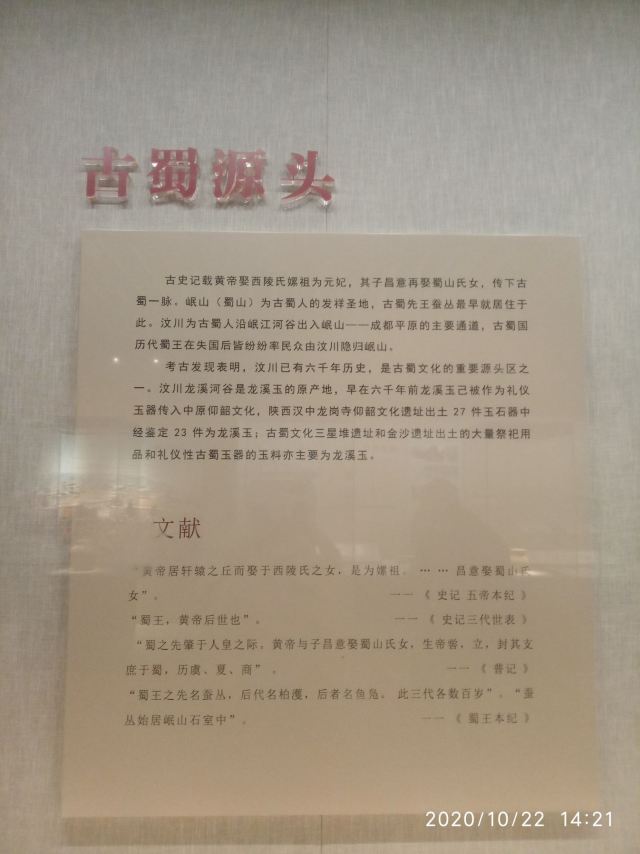 古蜀源头
古史记载黄帝娶西陵氏嫘祖为元妃，其子昌意再娶蜀山氏女，传下古
蜀一脉。岷山（蜀山）为古蜀人的发祥圣地，古蜀先王蚕丛最早就居住于
此。汶川为古蜀人沿岷江河谷出入岷山——成都平原的主要通道，古蜀国
历代蜀王在失国后皆纷纷率民众由汶川隐归岷山。
考古发现表明，汶川已有六千年历史，是古蜀文化的重要源头区之
一。汶川龙溪河谷是龙溪玉的原产地，早在六千年前龙溪玉己被作为礼仪
玉器传入中原仰韶文化，陕西汉中龙岗寺仰韶文化遗址出土 27 件玉石器中
经鉴定 23 件为龙溪玉；古蜀文化三星堆遗址和金沙遗址出土的大量祭祀用
品和礼仪性古蜀玉器的玉料亦主要为龙溪玉。
文献
“黄帝居轩辕之丘而娶于西陵氏之女，是为嫘祖。 … … 昌意娶蜀山氏
女”。 一一 《 史记 五帝本纪 》
“蜀王，黄帝后世也”。 一一 《 史记三代世表 》
“蜀之先肇于人皇之际。黄帝与子昌意娶蜀山氏女，生帝喾，立，封其支
庶于蜀，历虞、夏、商” 。 一一 《 普记 》
“蜀王之先名蚕丛，后代名柏濩，后者名鱼凫。 此三代各数百岁”。“蚕
丛始居岷山石室中”。 一一 《 蜀王本纪 》
2020/10/22 14:21